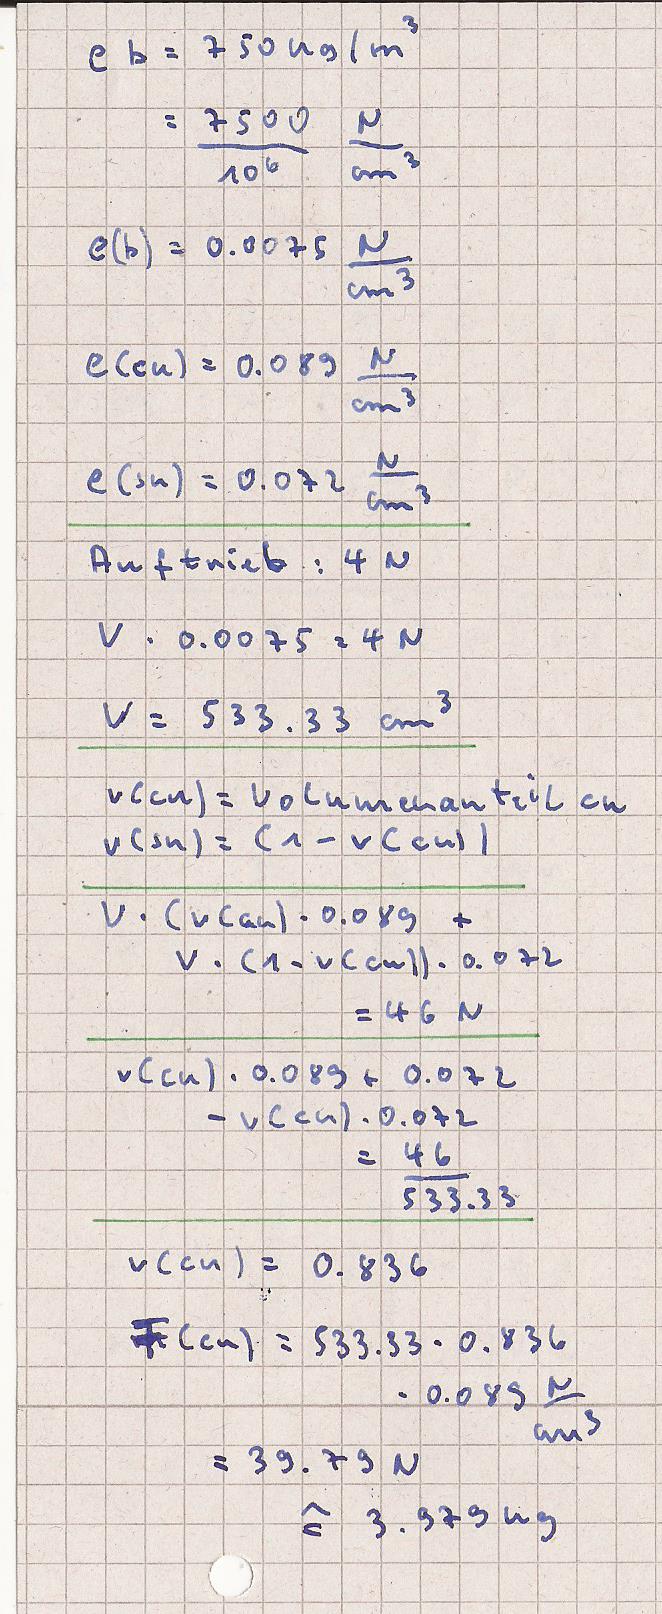 ρb = 750 kg/m³
= 7500/10⁶ N/cm³
ρ(b) = 0.0075 N/cm³
ρ(cu) = 0.089 N/cm³
ρ(sn) = 0.072 N/cm³
Auftrieb : 4 N
V · 0.0075 = 4 N
V = 533.33 cm³
v(cu) = Volumenanteil cu
v(sn) = (1 - v(cu))
V · (v(cu) · 0.089 +
V · (1 - v(cu)) · 0.072
= 46 N
v(cu) · 0.089 + 0.072
- v(cu) · 0.072
= 46/533.33
v(cu) = 0.836
F(cu) = 533.33 · 0.836
· 0.089 N/cm³
= 39.79 N
≙ 3.979 kg